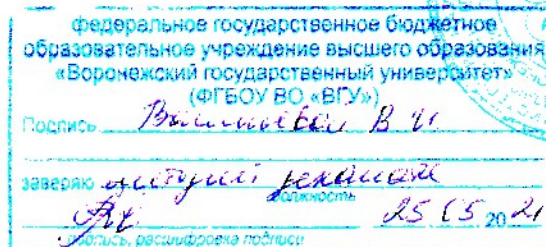 федеральное государственное бюджетное
образовательное учреждение высшего образования
«Воронежский государственный университет»
(ФГБОУ ВО «ВГУ»)
Подпись В И
заверяю
должность
20 21
подпись, расшифровка подписи